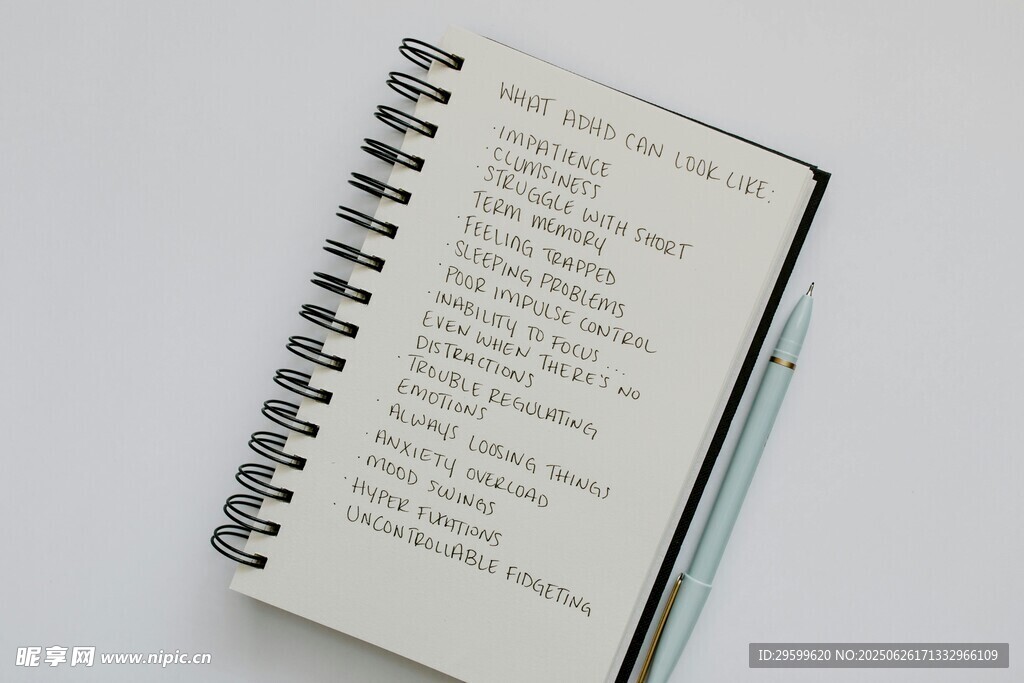 WHAT ADHD CAN LOOK LIKE:
· IMPATIENCE
· CLUMSINESS
· STRUGGLE WITH SHORT
TERM MEMORY
· FEELING TRAPPED
· SLEEPING PROBLEMS
· POOR IMPULSE CONTROL
· INABILITY TO FOCUS...
EVEN WHEN THERE'S NO
DISTRACTIONS
· TROUBLE REGULATING
EMOTIONS
· ALWAYS LOOSING THINGS
· ANXIETY OVERLOAD
· MOOD SWINGS
· HYPER FIXATIONS
· UNCONTROLLABLE FIDGETING
昵享网 www.nipic.cn
ID:29599620 NO:20250626171332966109